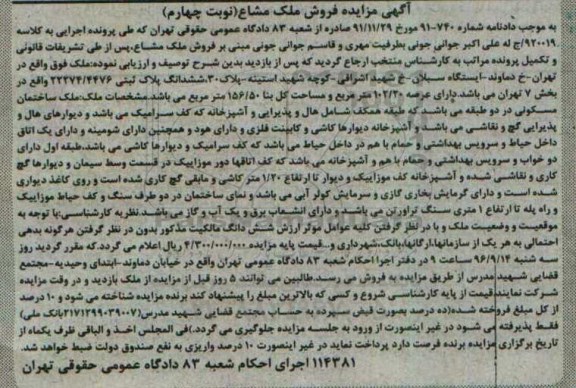 آگهی مزایده فروش ملک مشاع(نوبت چهارم)
به موجب دادنامه شماره ۷۴۰-۹۱ مورخ ۹۱/۱۱/۲۹ صادره از شعبه ۸۳ دادگاه عمومی حقوقی تهران که طی پرونده اجرایی به کلاسه
۹۲۰۰۱۹/ج له علی اکبر جوانی جونی بطرفیت مهری و قاسم جوانی جونی مبنی بر فروش ملک مشاع،پس از طی تشریفات قانونی
و تکمیل پرونده مراتب به کارشناس منتخب ارجاع گردید که پس از بازدید بدین شرح توصیف و ارزیابی نموده:ملک فوق واقع در
تهران-خ دماوند-ایستگاه سبلان-خ شهید اشراقی-کوچه شهید استینه-پلاک۳۰،ششدانگ پلاک ثبتی ۲۲۳۷۴/۴۴۷۶ واقع در
بخش ۷ تهران می باشد.دارای عرصه ۱۰۲/۲۰ متر مربع و مساحت کل بنا ۱۵۶/۵۰ متر مربع می باشد.مشخصات ملک:ملک ساختمان
مسکونی در دو طبقه می باشد که طبقه همکف شامل هال و پذیرایی و آشپزخانه که کف سرامیک می باشد و دیوارهای هال و
پذیرایی گچ و نقاشی می باشد و آشپزخانه دیوارها کاشی و کابینت فلزی و دارای هود و همچنین دارای شومینه و دارای یک اتاق
داخل حیاط و سرویس بهداشتی و حمام با هم در داخل حیاط می باشد که کف سرامیک و دیوارها کاشی می باشد،طبقه اول دارای
دو خواب و سرویس بهداشتی و حمام با هم و آشپزخانه می باشد که کف اتاقها دور موزاییک در قسمت وسط سیمان و دیوارها گچ
کاری و نقاشی شده و آشپزخانه کف موزاییک و دیوار تا ارتفاع ۱/۲۰ متر کاشی و مابقی گچ کاری شده است و روی کاغذ دیواری
شده است و دارای گرمایش بخاری گازی و سرمایش کولر آبی می باشد و نمای ساختمان در دو طرف سنگ و کف حیاط موزاییک
و راه پله تا ارتفاع ۱ متری سنگ تراورتن می باشد و دارای انشعاب برق و یک آب و گاز می باشد.نظریه کارشناسی:با توجه به
موقعیت و وضعیت ملک و با در نظر گرفتن کلیه عوامل موثر ارزش شش دانگ مالکیت مذکور بدون در نظر گرفتن هرگونه بدهی
احتمالی به هر یک از سازمانها،ارگانها،بانک،شهرداری و...قیمت پایه مزایده ۴/۳۰۰/۰۰۰/۰۰۰ ریال اعلام می گردد.که مقرر گردید روز
سه شنبه ۹۶/۹/۱۴ ساعت ۹ در دفتر اجرا احکام شعبه ۸۳ دادگاه عمومی تهران واقع در خیابان دماوند-ابتدای وحیدیه-مجتمع
قضایی شهید مدرس از طریق مزایده به فروش می رسد.طالبین می توانند ۵ روز قبل از مزایده از ملک بازدید و در وقت مزایده
شرکت نمایند.قیمت از پایه کارشناسی شروع و کسی که بالاترین مبلغ را پیشنهاد کند برنده مزایده شناخته می شود و ۱۰ درصد
از کل مبلغ فروخته شده(ده درصد بصورت قبض سپرده به حساب مجتمع قضایی شهید مدرس(۲۱۷۱۲۹۹۰۳۹۰۰۷بانک ملی)
فقط پذیرفته می شود در غیر اینصورت از ورود به جلسه مزایده جلوگیری می گردد.)فی المجلس اخذ و الباقی ظرف یکماه از
تاریخ برگزاری مزایده برنده فرصت دارد پرداخت نماید در غیر اینصورت ۱۰ درصد واریزی به نفع صندوق دولت ضبط خواهد شد.
۱۱۴۳۸۱ اجرای احکام شعبه ۸۳ دادگاه عمومی حقوقی تهران